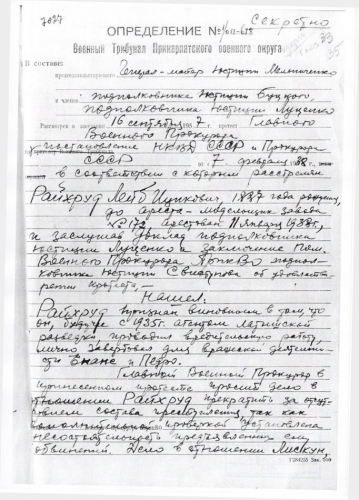 7027
Секретно
ОПРЕДЕЛЕНИЕ №
Военный Трибунал Прикарпатского военного округа
В составе:
председательствующего Генерал-майор Юстиции
и членов подполковника Юстиции Буцкого,
подполковника Юстиции Луценко
Рассмотрел в заседании 16 сентября 1957, протест Главного
Военного Прокурора
постановление НКВД СССР и Прокурора
СССР от 7 февраля 38 г.,
в соответствии с которым расстрелян
Райхруд Лейб Ицкович, 1887 года рождения,
до ареста – модельщик завода
№ 173, арестован 11 января 1938г.
и заслушав доклад подполковника
Юстиции Луценко и заключение пом.
Военного Прокурора ПрикВО подпол-
ковника Юстиции об удовлетво-
рении протеста, –
Нашел:
Райхруд признан виновным в том, что
он, будучи с 1935г. агентом латвийской
разведки проводил вредительскую работу,
лично завербовал для вражеской деятельно-
сти и Педро.
Главный Военный Прокурор в
принесенном протесте просит дело в
отношении Райхруд прекратить за отсут-
ствием состава преступления, так как
дополнительной проверкой установлена
несостоятельность предъявленных ему
обвинений. Дело в отношении Лискун,